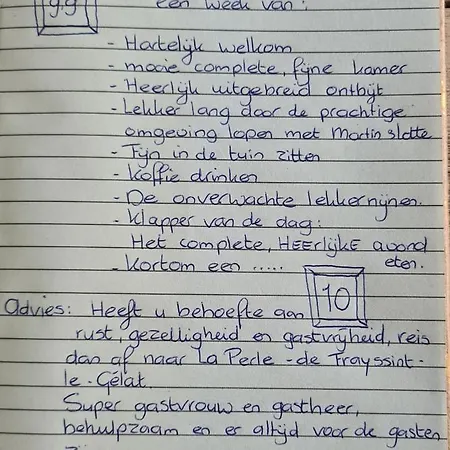 99 een week van:
- Hartelijk welkom
- mooie complete, fijne kamer
- Heerlijk uitgebreid ontbijt
- Lekker lang door de prachtige
omgeving lopen met Martin slotte
- Fijn in de tuin zitten
- Koffie drinken
- De onverwachte lekkernijnen.
- Klapper van de dag:
Het complete, HEErlijke avond
eten.
- Kortom een ..... 10
Advies: Heeft u behoefte aan
rust, gezelligheid en gastvrijheid, reis
dan af naar La Perle - de Frayssint -
le - Gélat.
Super gastvrouw en gastheer,
behulpzaam en er altijd voor de gasten